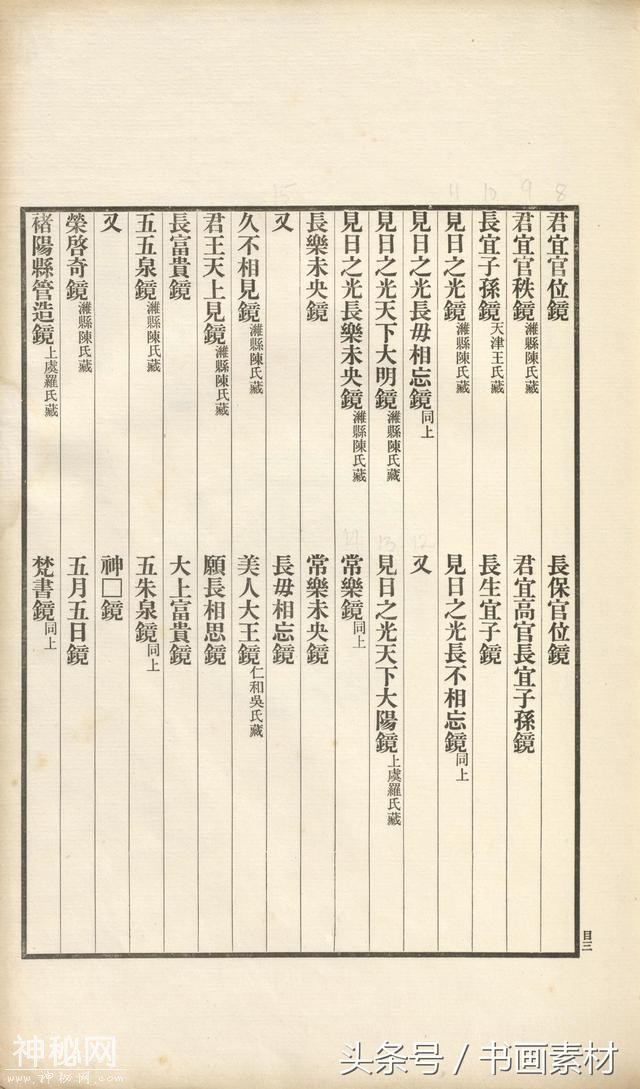 8 9 10 11 15
君宜官位鏡 長保官位鏡
君宜官秩鏡 濰縣陳氏藏 君宜高官長宜子孫鏡
長宜子孫鏡 天津王氏藏 長生宜子鏡
見日之光鏡 濰縣陳氏藏 見日之光長不相忘鏡 同上
見日之光長毋相忘鏡 同上 又
見日之光天下大明鏡 濰縣陳氏藏 見日之光天下大陽鏡 上虞羅氏藏
見日之光長樂未央鏡 濰縣陳氏藏 常樂鏡 同上
長樂未央鏡 常樂未央鏡
又 長毋相忘鏡
久不相見鏡 濰縣陳氏藏 美人大王鏡 仁和吳氏藏
君王天上見鏡 濰縣陳氏藏 願長相思鏡
長富貴鏡 大上富貴鏡
五五泉鏡 濰縣陳氏藏 五朱泉鏡 同上
又 神□鏡
榮啓奇鏡 濰縣陳氏藏 五月五日鏡
褚陽縣管造鏡 上虞羅氏藏 梵書鏡 同上
12 13 14
目三
神秘网
头条号 / 书画素材